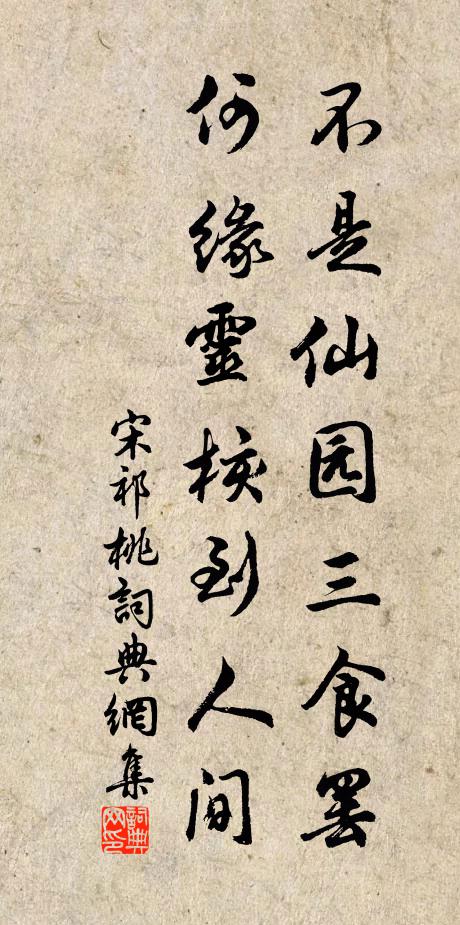 不是仙园三食罢
何缘靈核到人间
宋祁桃詞典網集
詞典网印